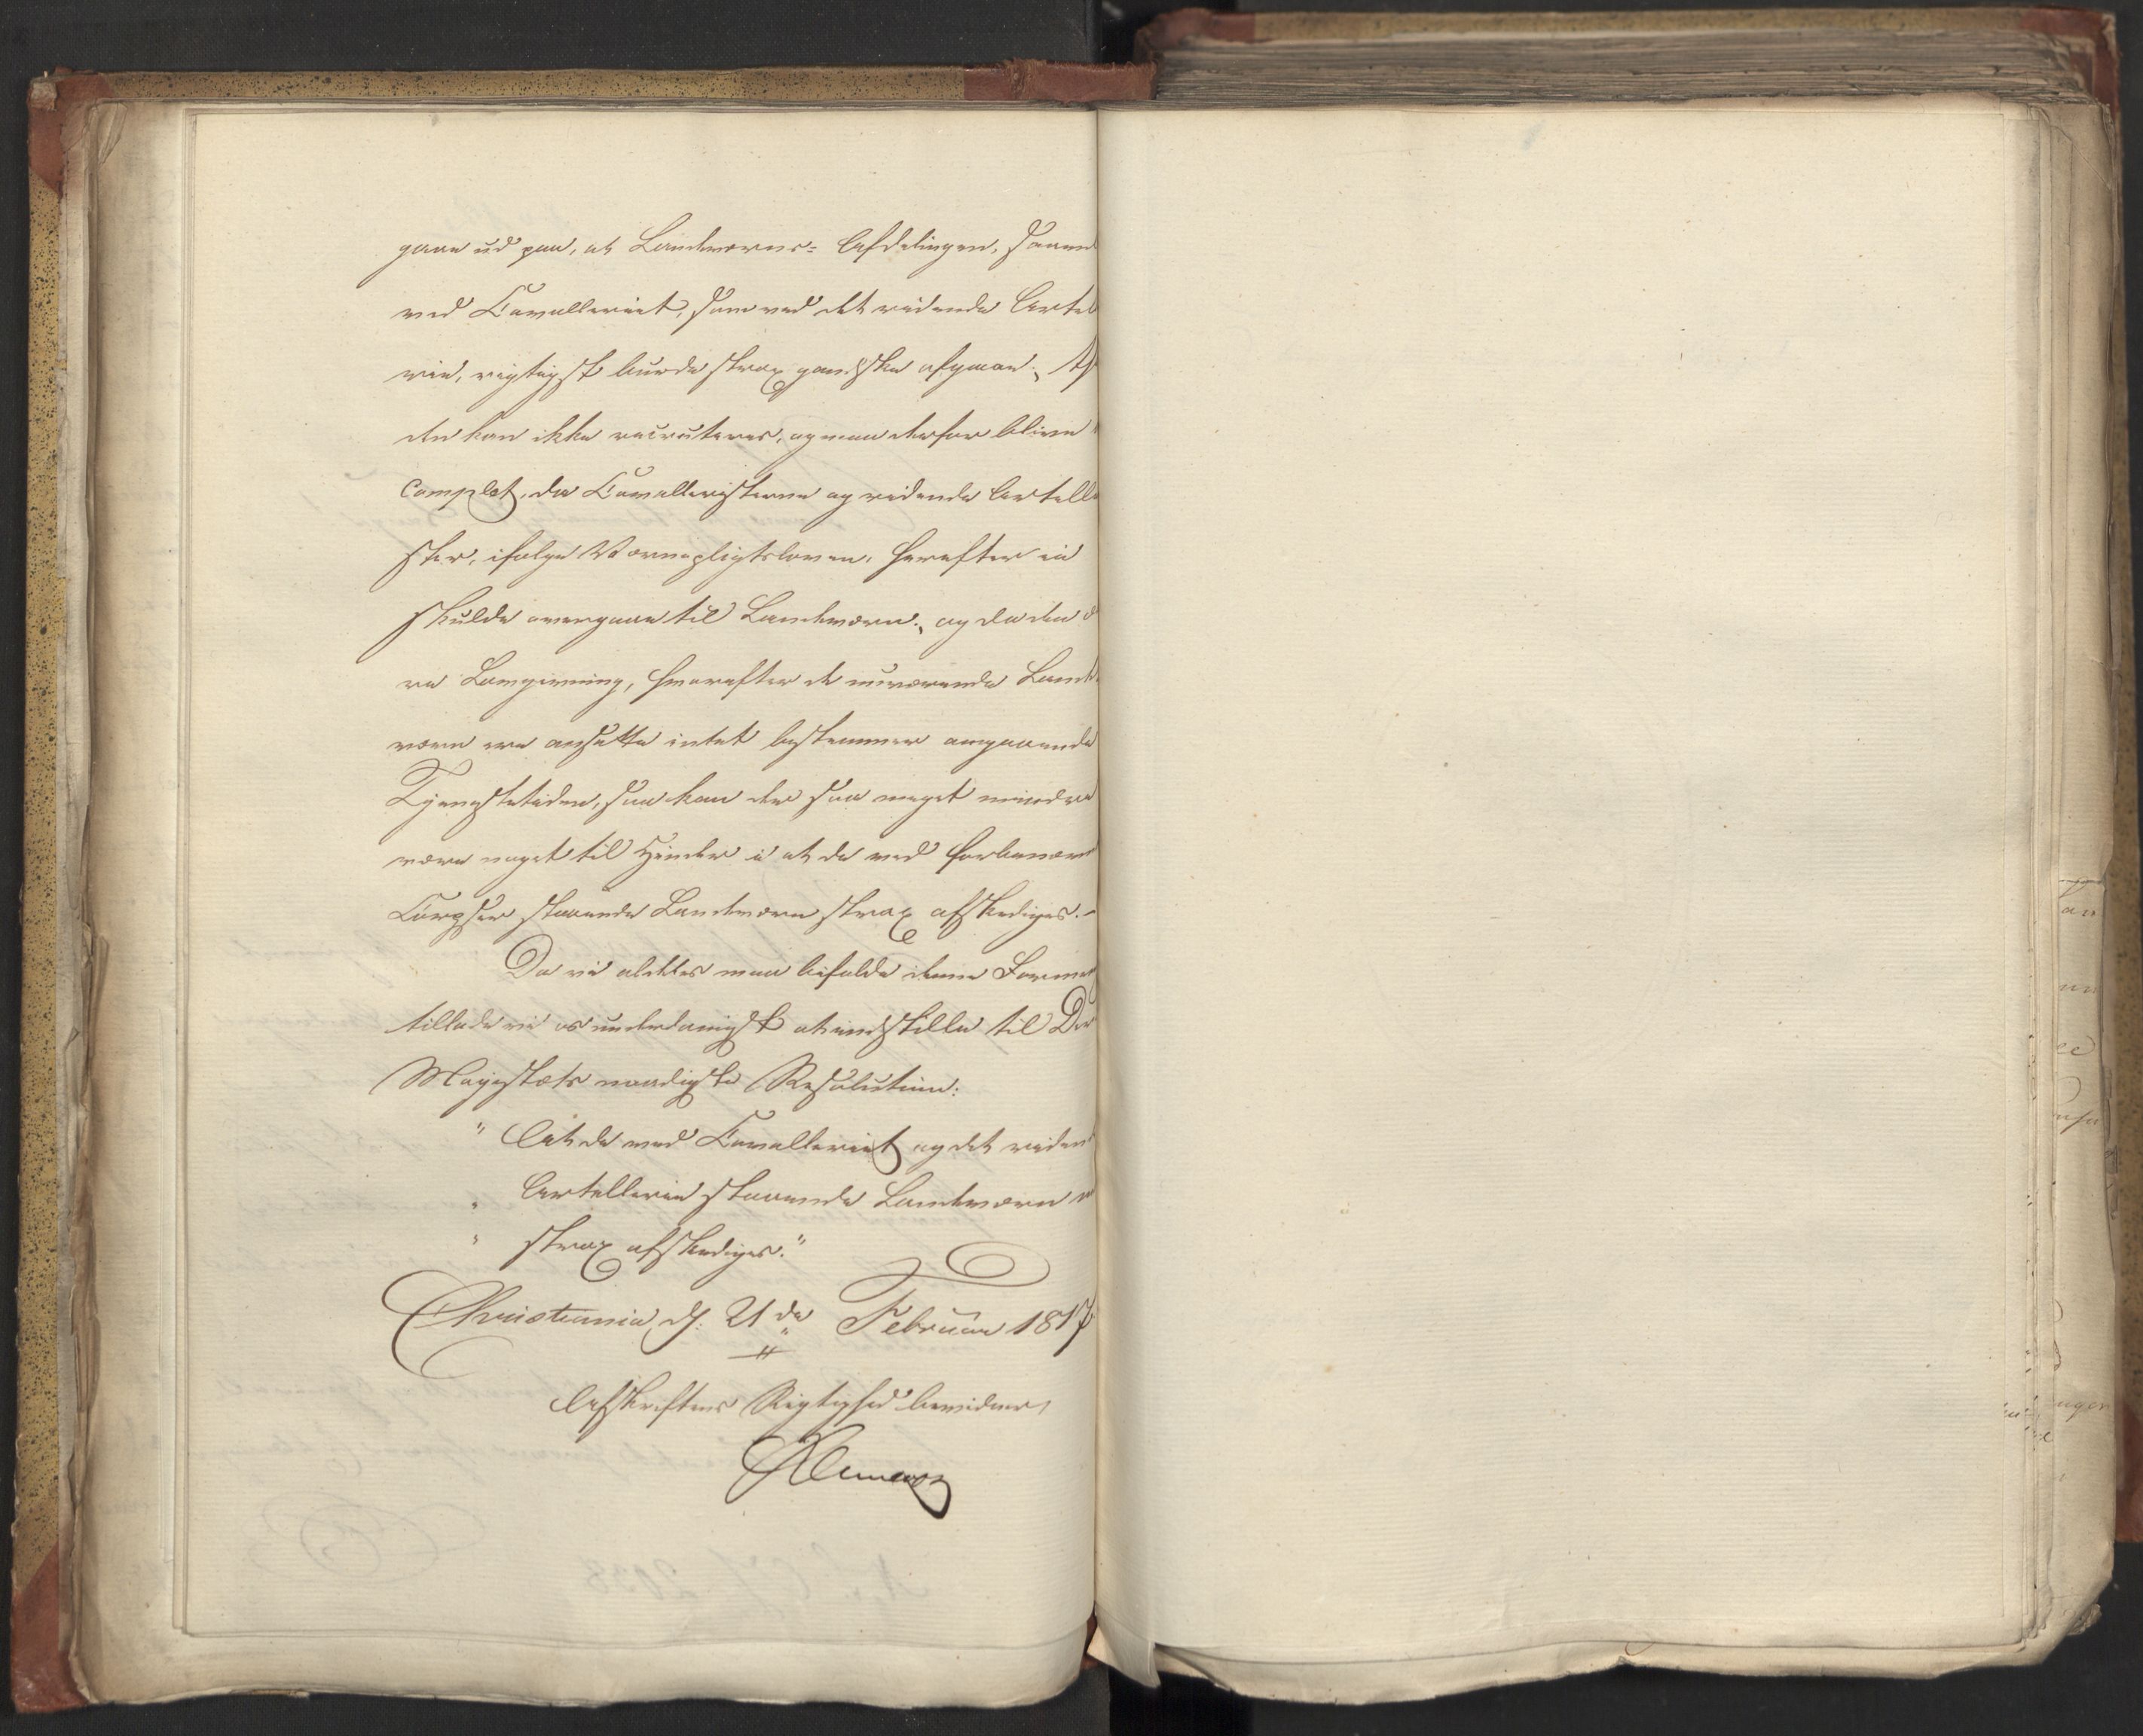 gaae ud paa, at Landeværns= Afdelingen, saavel
ved Cavalleriet, som ved det ridende Artel
rie, rigtigst burde strax gandske afgaae;
den kan ikke recruteres, og maa derfor blive
complet, da Cavalleristerne og ridende Artelle
ster, ifølge Værnepligtsloven, herefter ei
skulde overgaae til Landeværn; og da den
re Lovgivning, hvorefter de nuværende Lande
værn ere ansatte intet bestemmer angaaende
Tjenestetiden, saa kan der saa meget mindre
være noget til Hinder i at de ved forbenævn
Corpser staaende Landeværn strax afskediges.-
Da vi aldeles maa bifalde denne Forme
tillade vi os underdanigst at indstille til De
Majestæts naadigste Resolution:
" At de ved Cavalleriet og det riden
" Artelleriet staaende Landeværn
" strax afskediges."
Christiania d: 21de Februar 1817
Afskriftens Rigtighed bevidner,